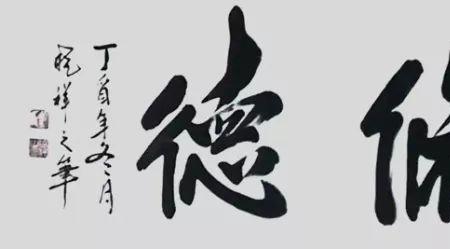 德
丁酉年冬月
晓祥之筆